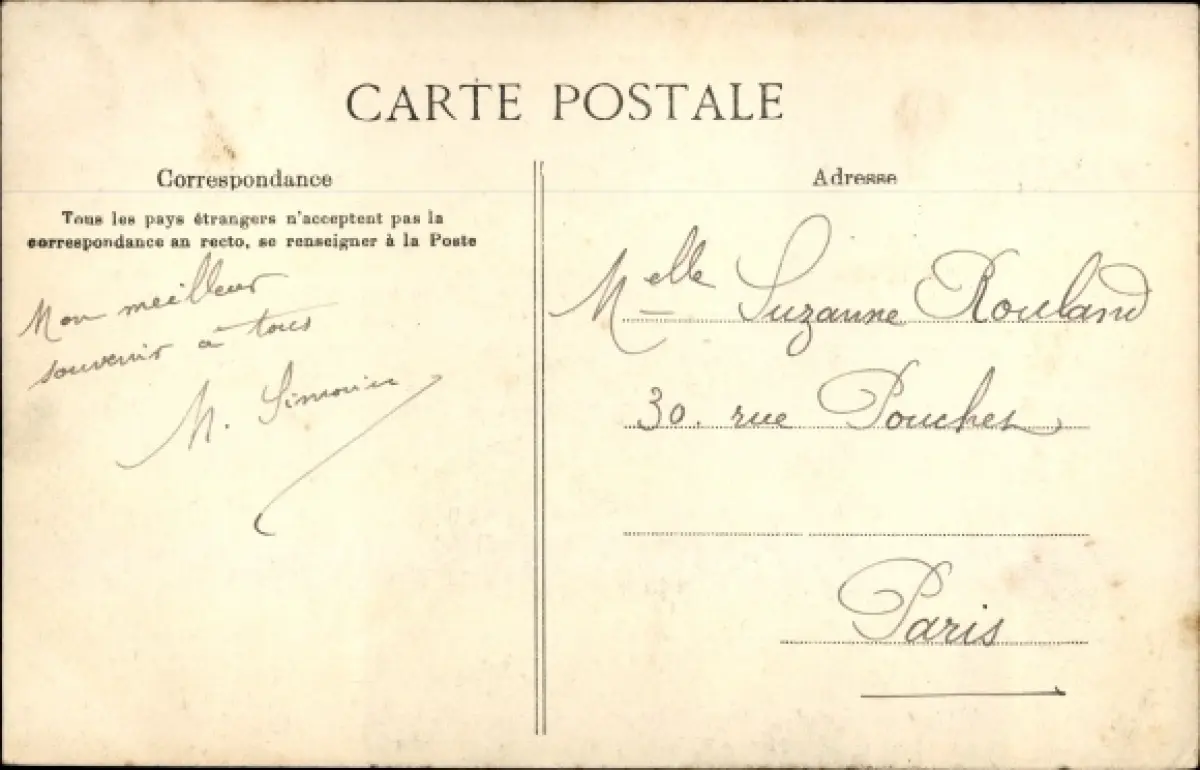 CARTE POSTALE
Correspondance
Tous les pays étrangers n'acceptent pas la
correspondance au recto, se renseigner à la Poste
Mon meilleur
souvenir à tous
M. Simonin
Adresse
Melle Suzanne Rouland
30. rue Pouchet
Paris